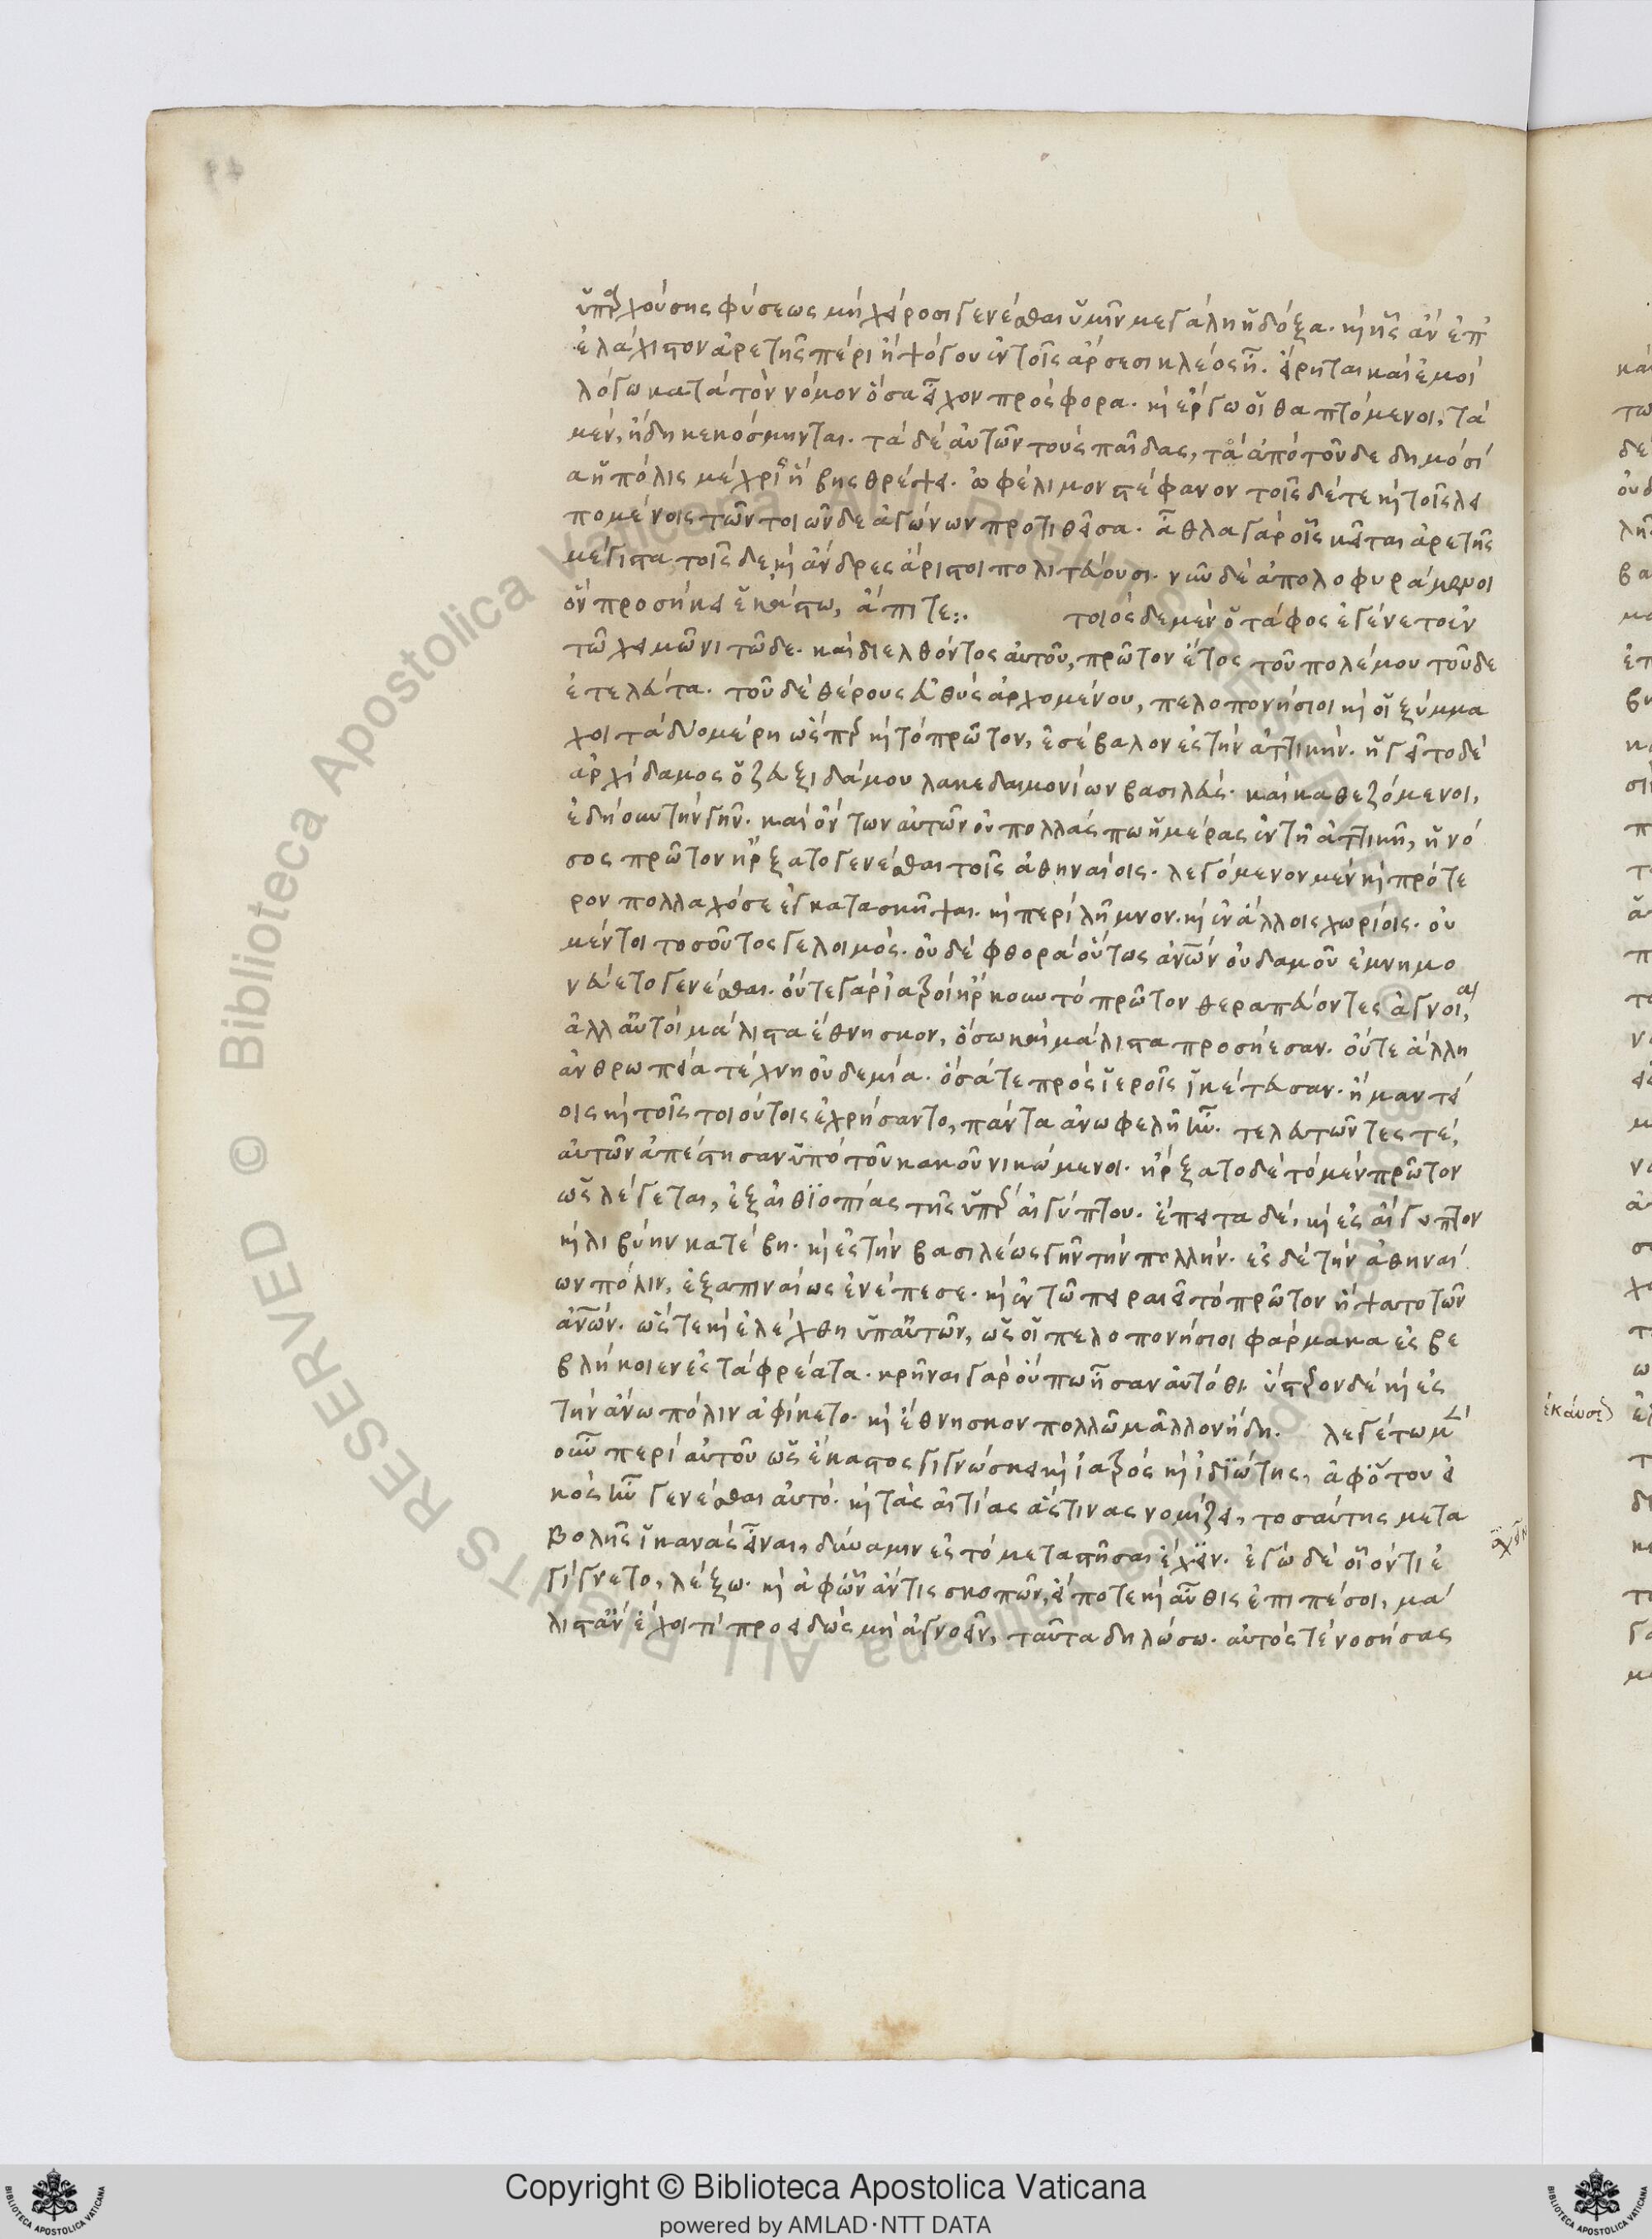 ὑπαρχούσης φύσεως μὴ χείροσι γενέσθαι ὑμῖν μεγάλη ἡ δόξα. καὶ ἧς ἂν ἐπ'
ἐλάχιστον ἀρετῆς πέρι ἢ ψόγου ἐν τοῖς ἄρσεσι κλέος ἦ. εἴρηται καὶ ἐμοὶ
λόγω κατὰ τὸν νόμον ὅσα εἶχον πρόσφορα. καὶ ἔργω οἱ θαπτόμενοι, τὰ
μὲν, ἤδη κεκόσμηνται. τὰ δὲ αὐτῶν τοὺς παῖδας, τὰ ἀπὸ τοῦδε δημοσί
α ἡ πόλις μέχρις ἥβης θρέψει. ὠφέλιμον στέφανον τοῖς δέ τε καὶ τοῖς λει
πομένοις τῶν τοιῶνδε ἀγώνων προτιθεῖσα. ἆθλα γὰρ οἷς κεῖται ἀρετῆς
μέγιστα τοῖς δὲ καὶ ἄνδρες ἄριστοι πολιτεύουσι. νῦν δὲ ἀπολοφυράμενοι
ὃν προσήκει ἑκάστω, ἄπιτε:. τοιόσδε μὲν ὁ τάφος ἐγένετο ἐν
τῶ χειμῶνι τῶδε. καὶ διελθόντος αὐτοῦ, πρῶτον ἔτος τοῦ πολέμου τοῦδε
ἐτελεύτα. τοῦ δὲ θέρους εὐθὺς ἀρχομένου, πελοπονήσιοι καὶ οἱ ξύμμα
χοι τὰ δύο μέρη ὥσπερ καὶ τὸ πρῶτον, ἐσέβαλον ἐς τὴν ἀττικήν. ἡγεῖτο δὲ
ἀρχίδαμος ὁ ζευξιδάμου λακεδαιμονίων βασιλεύς. καὶ καθεζόμενοι,
ἐδήουν τὴν γῆν. καὶ ὄντων αὐτῶν οὐ πολλάς πω ἡμέρας ἐν τῆ ἀττικῆ, ἡ νό
σος πρῶτον ἤρξατο γενέσθαι τοῖς ἀθηναίοις. λεγόμενον μὲν καὶ πρότε
ρον πολλαχόσε ἐγκατασκῆψαι. καὶ περὶ λῆμνον. καὶ ἐν ἄλλοις χωρίοις. οὐ
μέντοι τοσοῦτός γε λοιμός. οὐδὲ φθορὰ οὕτως ἀνῶν οὐδαμοῦ ἐμνημο
νεύετο γενέσθαι. οὔτε γὰρ ἰατροὶ ἤρκουν τὸ πρῶτον θεραπεύοντες ἀγνοία,
ἀλλ' αὐτοὶ μάλιστα ἔθνησκον, ὅσω καὶ μάλιστα προσήεσαν. οὔτε ἄλλη
ἀνθρωπεία τέχνη οὐδεμία. ὅσά τε πρὸς ἱεροῖς ἱκέτευσαν. ἢ μαντεί
οις καὶ τοῖς τοιούτοις ἐχρήσαντο, πάντα ἀνωφελῆ ἦν. τελευτῶντές τέ,
αὐτῶν ἀπέστησαν ὑπὸ τοῦ κακοῦ νικώμενοι. ἤρξατο δὲ τὸ μὲν πρῶτον
ὡς λέγεται, ἐξ αἰθϊοπίας τῆς ὑπὲρ αἰγύπτου. ἔπειτα δὲ, καὶ ἐς αἴγυπτον
καὶ λιβύην κατέβη. καὶ ἐς τὴν βασιλέως γῆν τὴν πολλήν. ἐς δὲ τὴν ἀθηναί
ων πόλιν, ἐξαπιναίως ἐνέπεσε. καὶ ἐν τῶ πειραιεῖ τὸ πρῶτον ἥψατο τῶν
ἀνῶν. ὥστε καὶ ἐλέχθη ὑπ' αὐτῶν, ὡς οἱ πελοπονήσιοι φάρμακα ἐσβε
βλήκοιεν ἐς τὰ φρέατα. κρῆναι γὰρ οὔπω ἦσαν αὐτόθι. ὕστερον δὲ καὶ ἐς
τὴν ἄνω πόλιν ἀφίκετο. καὶ ἔθνησκον πολλῶ μᾶλλον ἤδη. λεγέτω μὲν
οὖν περὶ αὐτοῦ ὡς ἕκαστος γιγνώσκει καὶ ἰατρὸς καὶ ἰδϊώτης, ἀφ' ὅτου εἰ
κὸς ἦν γενέσθαι αὐτό. καὶ τὰς αἰτίας ἅστινας νομίζει, τοσαύτης μετα
βολῆς ἱκανὰς εἶναι, δύναμιν ἐς τὸ μεταστῆσαι ἔχειν. ἐγὼ δὲ οἷον τι ἐ
γίγνετο, λέξω. καὶ ἀφ' ὧν ἄν τις σκοπῶν, εἴ ποτε καὶ αὖθις ἐπιπέσοι, μά
λιστ' ἂν ἔχοι τὶ προειδὼς μὴ ἀγνοεῖν, ταῦτα δηλώσω. αὐτός τε νοσήσας